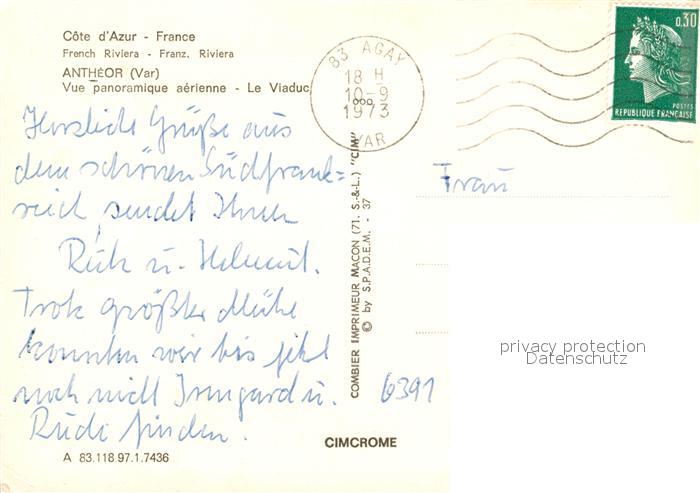 Côte d'Azur - France
French Riviera - Franz. Riviera
ANTHÉOR (Var)
Vue panoramique aérienne - Le Viaduc
83 AGAY
18 H
10-9
1973
VAR
0,30
POSTES
REPUBLIQUE FRANÇAISE
Herzliche Grüße aus
dem schönen Südfrank=
reich sendet Ihnen
Ruth u. Helmut.
Trotz größter Mühe
konnten wir bis jetzt
noch nicht Irmgard u.
Rudi finden.
COMBIER IMPRIMEUR MACON (71. S.-&-L.) "CIM"
© by S.P.A.D.E.M. - 37
Frau
6391
privacy protection
Datenschutz
CIMCROME
A 83.118 97.1.7436